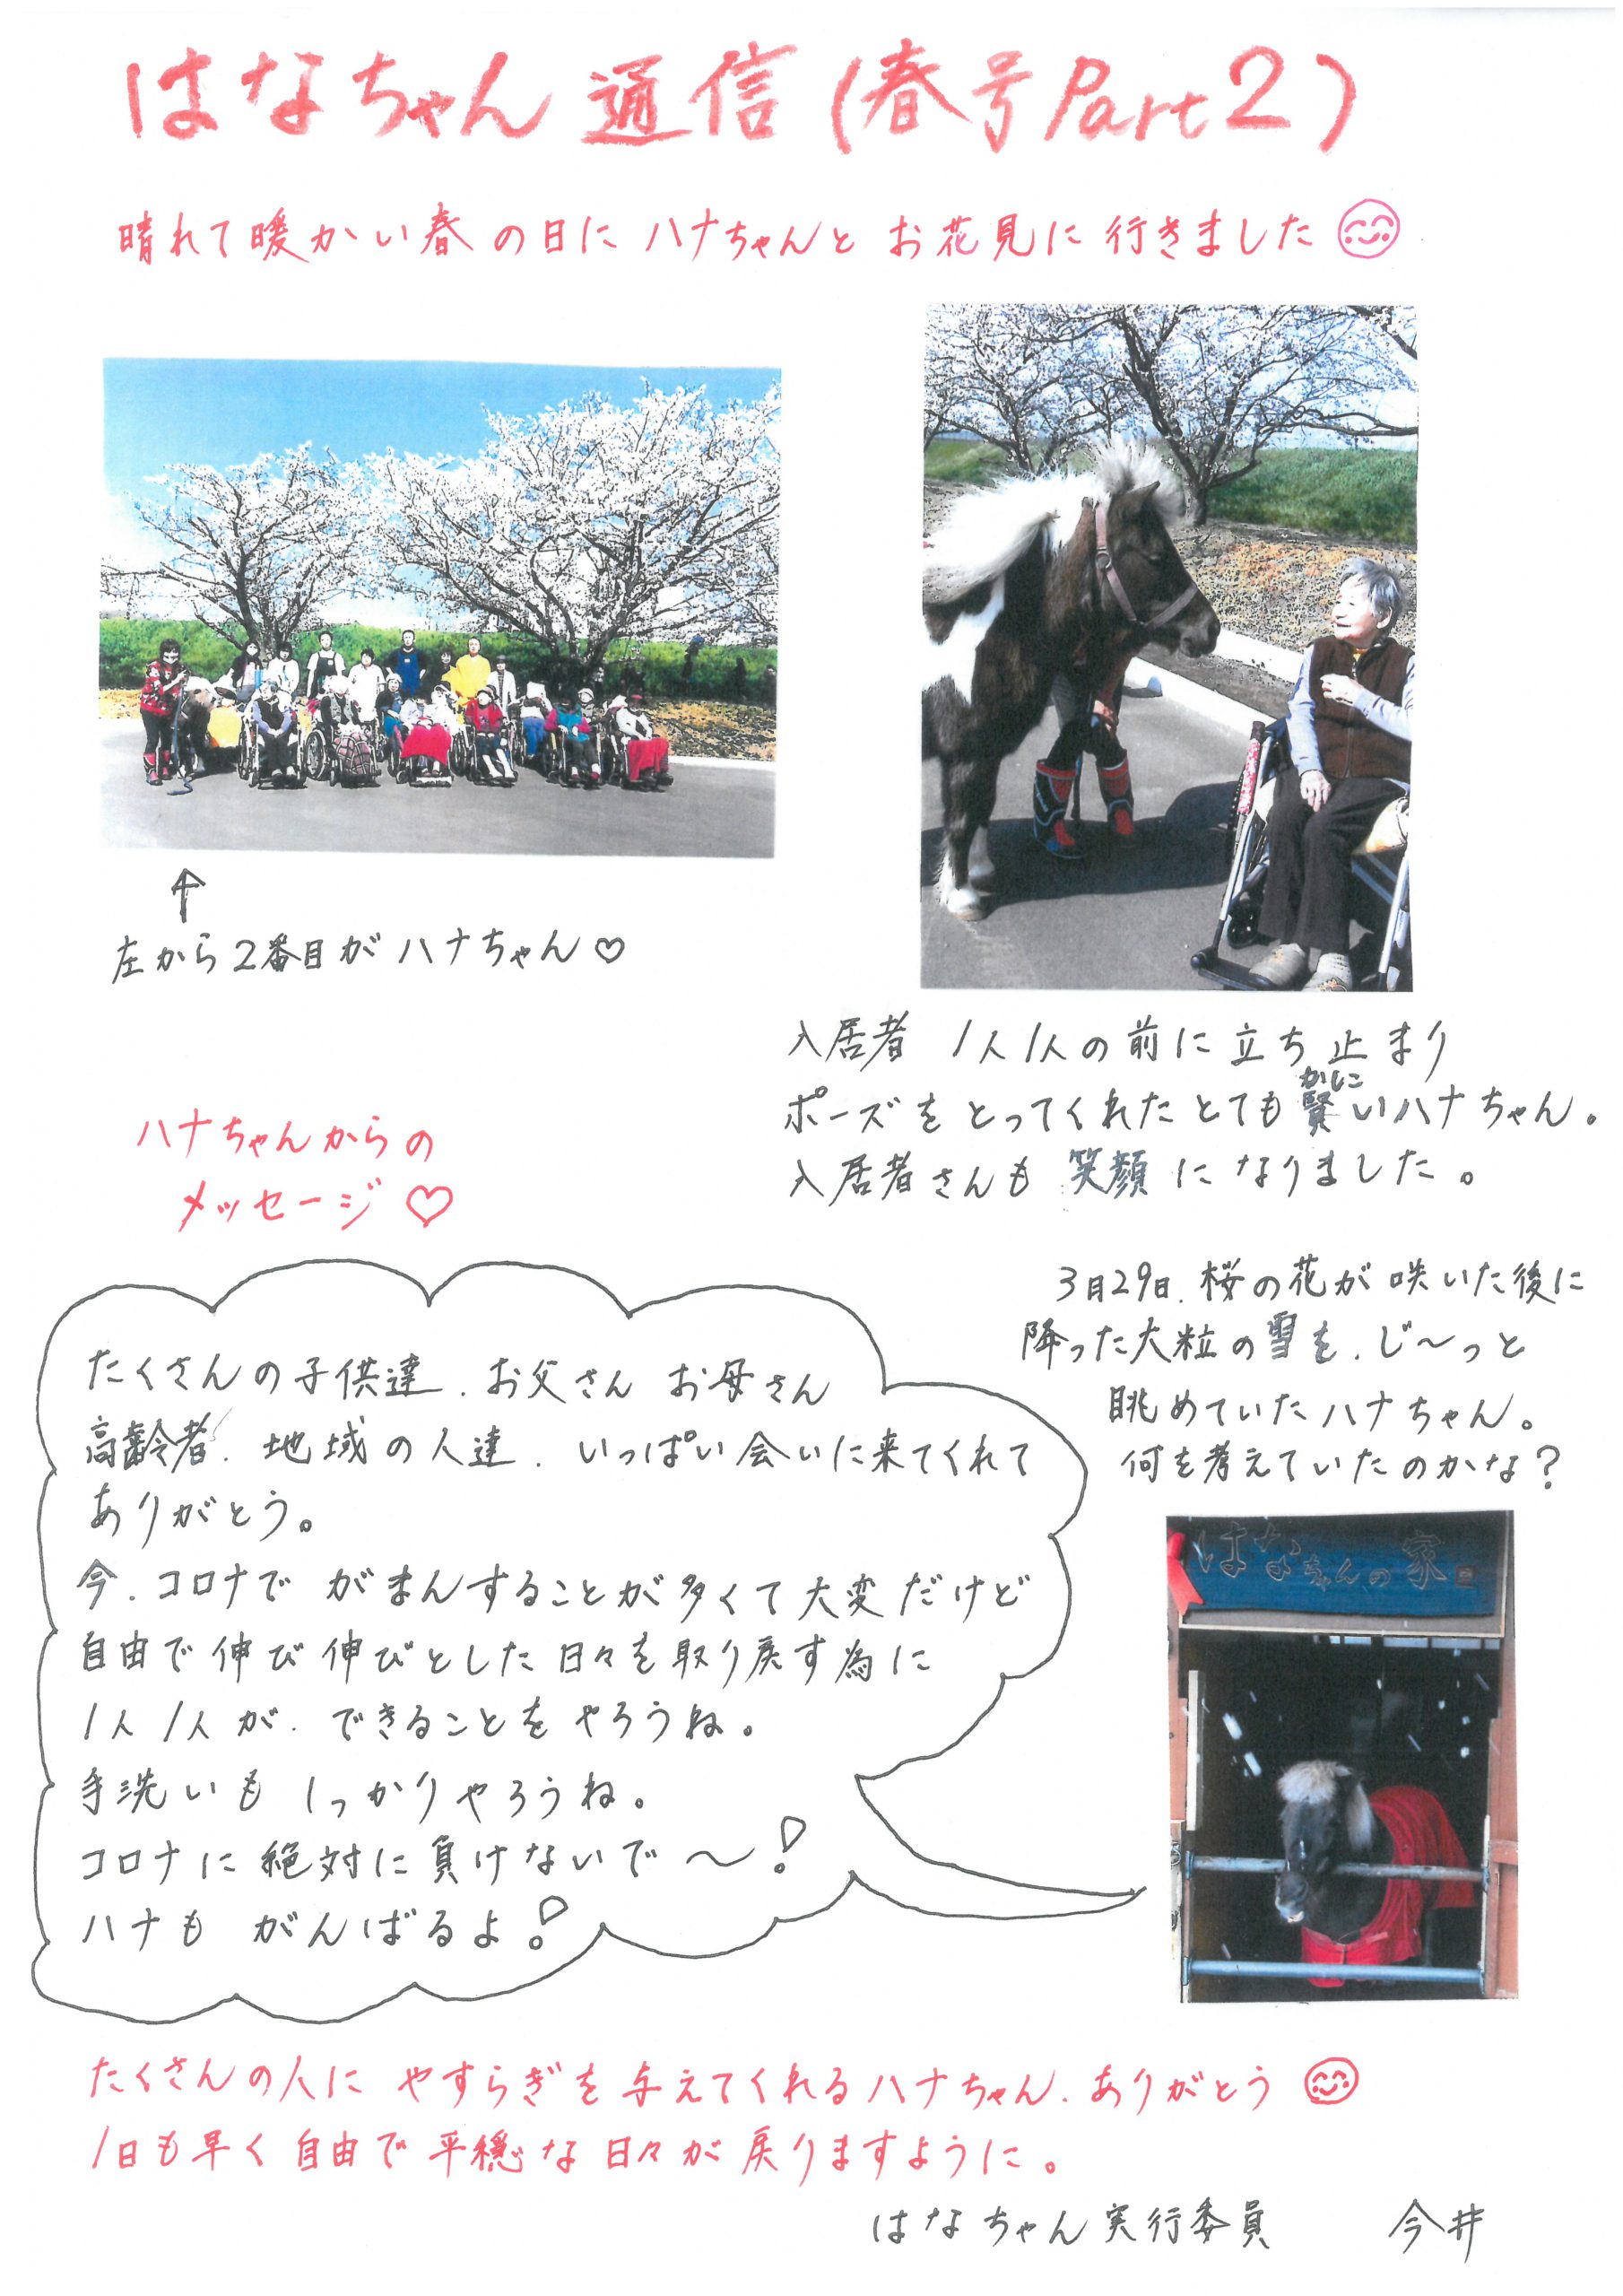 はなちゃん通信(春号Part2)
晴れて暖かい春の日にハナちゃんとお花見に行きました
↑
左から2番目がハナちゃん♡
入居者 1人1人の前に立ち止まり
ポーズをとってくれたとても賢いハナちゃん。
かしこ
入居者さんも笑顔になりました。
ハナちゃんからの
メッセージ♡
3月29日、桜の花が咲いた後に
降った大粒の雪を、じ〜っと
眺めていたハナちゃん。
何を考えていたのかな?
はなちゃんの家
たくさんの子供達、お父さん お母さん
高齢者、地域の人達、いっぱい会いに来てくれて
ありがとう。
今、コロナで がまんすることが多くて大変だけど
自由で伸び伸びとした日々を取り戻す為に
1人1人が、できることをやろうね。
手洗いも しっかりやろうね。
コロナに絶対に負けないで〜!
ハナも がんばるよ!
たくさんの人に やすらぎを与えてくれるハナちゃん、ありがとう
1日も早く自由で平穏な日々が戻りますように。
はなちゃん実行委員 今井